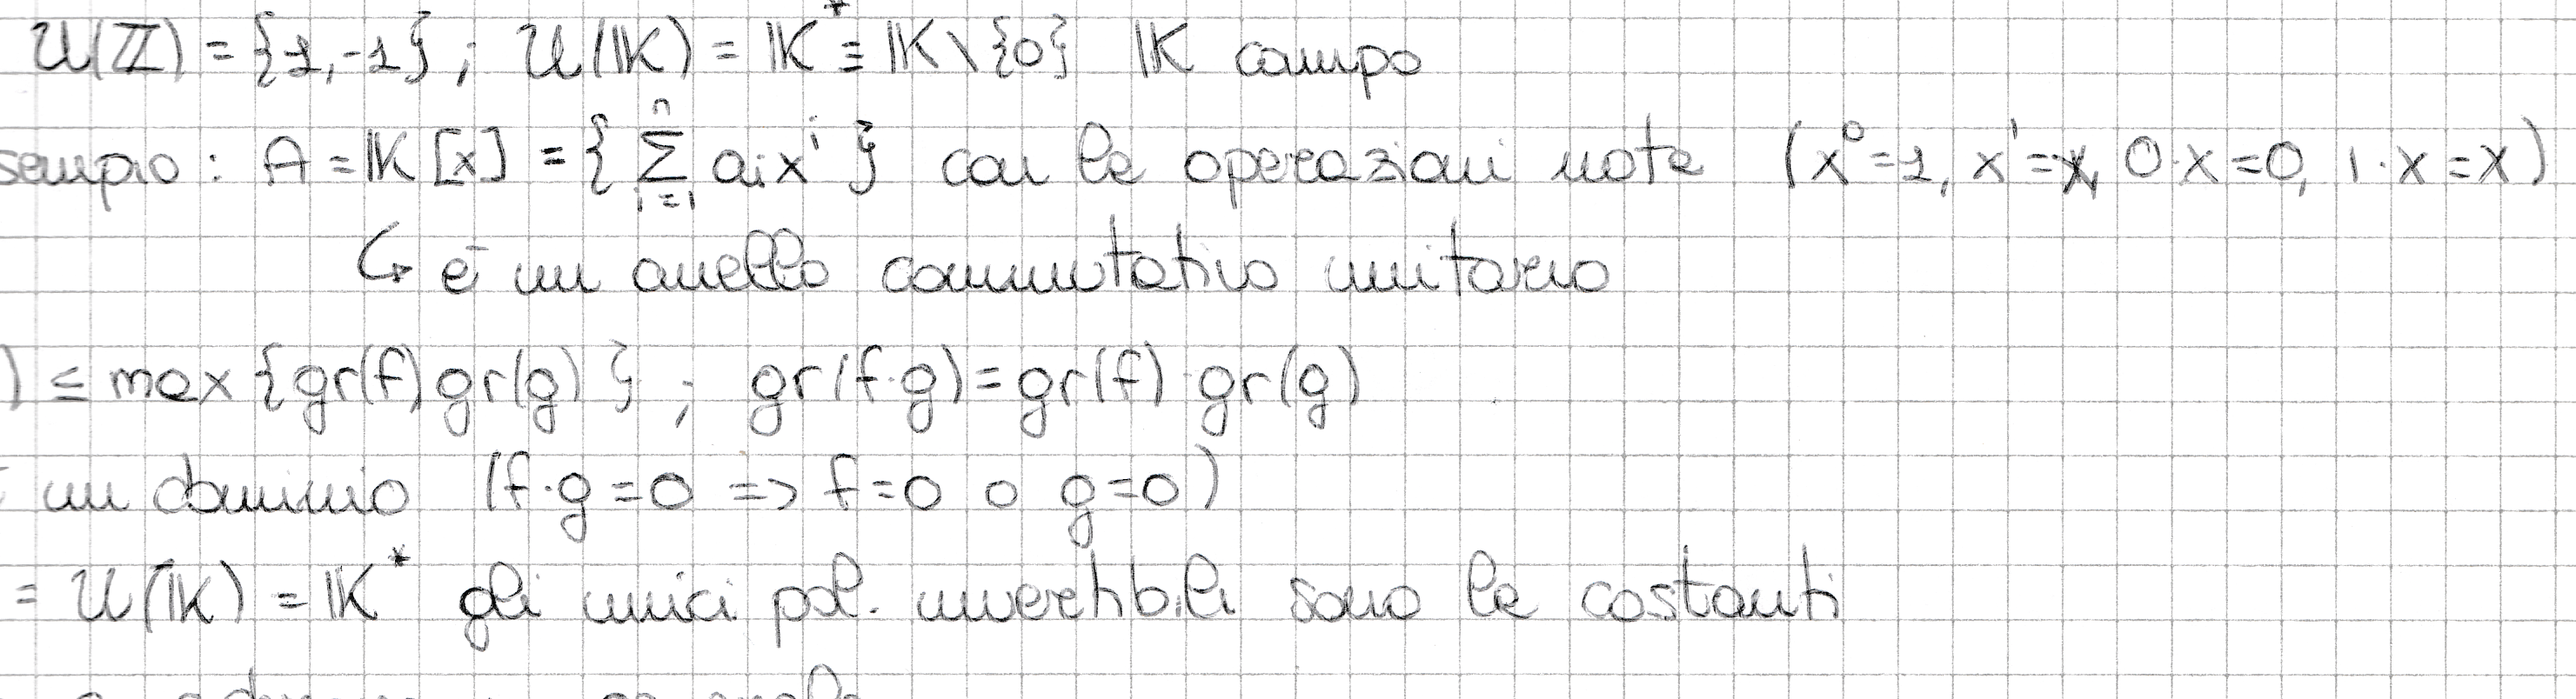 U(ℤ) = {1,-1} ; U(𝕂) = 𝕂* = 𝕂 \ {0} 𝕂 campo
sempio : A = 𝕂[x] = { ∑_{i=1}^{n} aᵢxⁱ } con le operazioni note (x⁰=1, x¹=x, 0·x=0, 1·x=x)
↳ è un anello commutativo unitario
) ≤ max {gr(f) gr(g)} ; gr(f·g) = gr(f) · gr(g)
un dominio (f·g=0 => f=0 o g=0)
= U(𝕂) = 𝕂* gli unici pol. invertibili sono le costanti